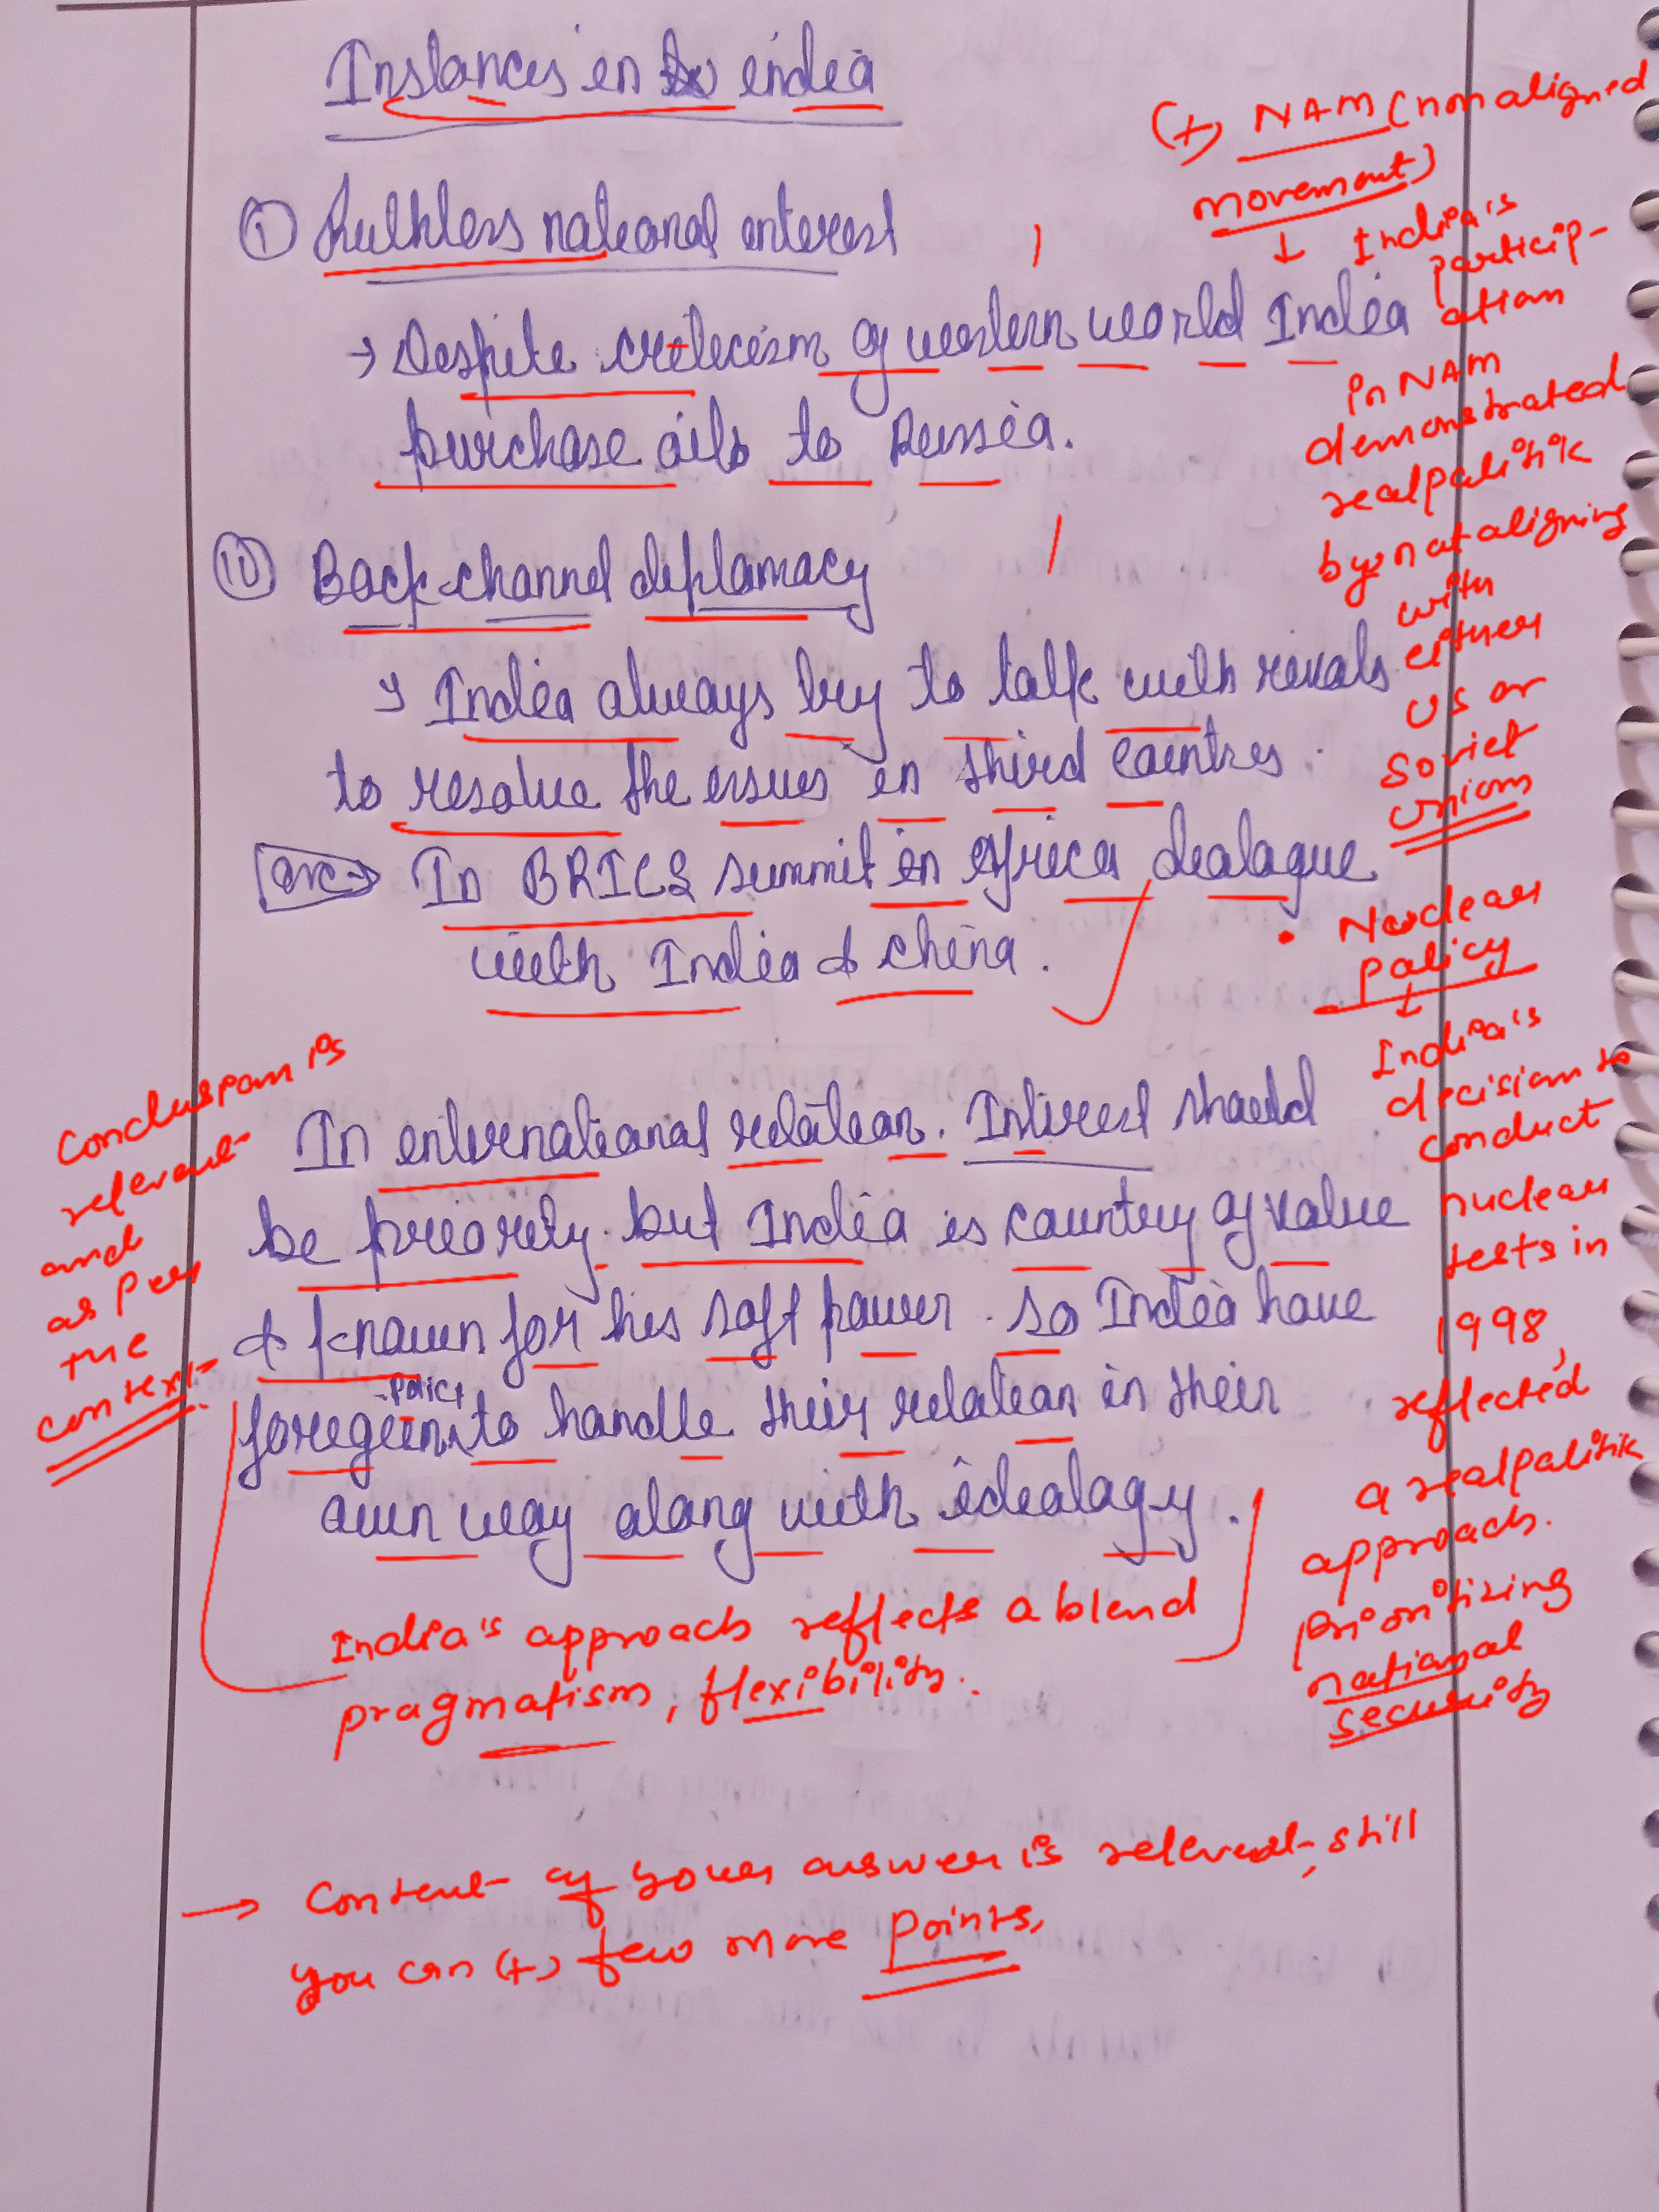 Instances in india
(+) NAM (non aligned
movement)
↓ India's
particip-
ation
in NAM
demonstrated
realpolitik
by not aligning
with
either
US or
Soviet
Union
① Ruthless national interest
→ Despite criticism of western world India
purchase oils to Russia.
⑪ Back-channel diplomacy
→ India always try to talk with rivals
to resolve the issues in third countries.
→ In BRICS summit in Africa dialogue
with India & china.
• Nuclear
Policy
↓
India's
decision to
conduct
nuclear
tests in
1998,
reflected
a realpolitik
approach.
prioritizing
national
security
Conclusion is
relevant
and
as per
the
context
In international relation. Interest should
be priority. but India is country of value
& known for his soft power. so India have
foregien policy to handle their relation in their
own way along with idealogy.
India's approach reflects a blend
pragmatism, flexibility.
→ Content of your answer is relevant, still
you can (+) few more points,